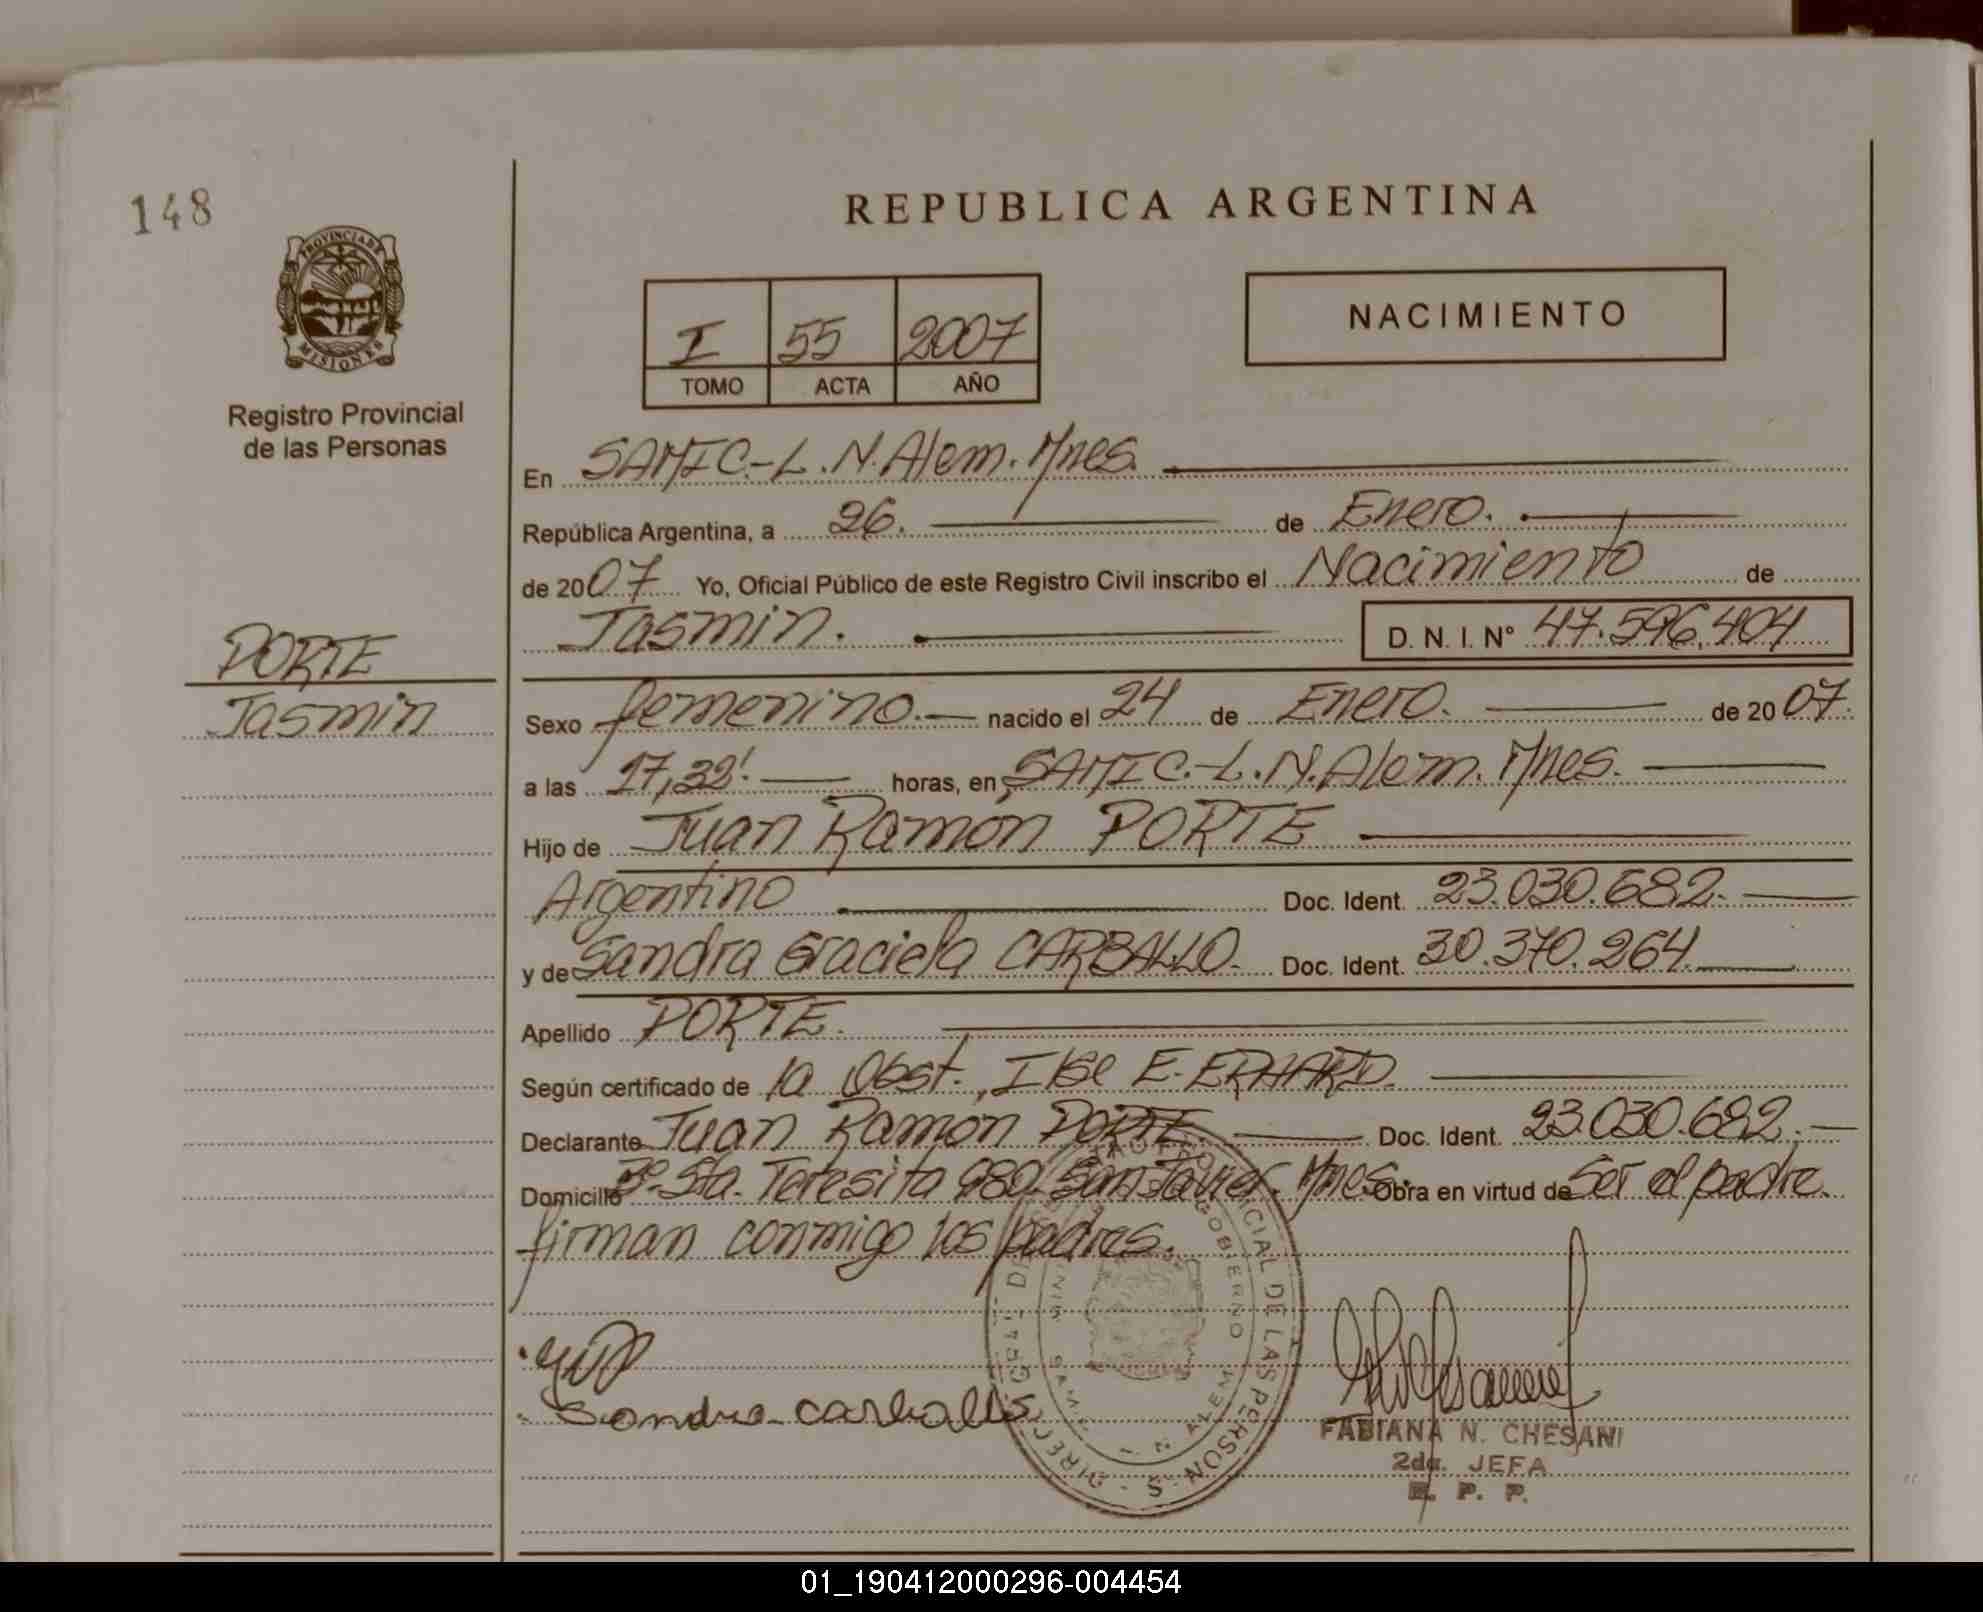 148
REPUBLICA ARGENTINA
PROVINCIA DE
MISIONES
Registro Provincial
de las Personas
I 55 2007
TOMO ACTA AÑO
NACIMIENTO
En SAMIC.-L.N.Alem.Mnes.
República Argentina, a 26. de Enero.
de 2007 Yo, Oficial Público de este Registro Civil inscribo el Nacimiento de
Jasmin. D. N. I. Nº 47.596.404
PORTE
Jasmin
Sexo femenino.- nacido el 24 de Enero. de 2007.
a las 17,32' horas, en SAMIC.-L.N.Alem.Mnes.
Hijo de Juan Ramón PORTE
Argentino Doc. Ident. 23.030.682.
y de Sandra Graciela CARBALLO. Doc. Ident. 30.370.264.
Apellido PORTE.
Según certificado de la Obst., Ilse E. ERHARD.
Declarante Juan Ramón PORTE. Doc. Ident. 23.030.682.
Domicilio Bº Sta. Teresita 980 San Javier. Mnes. Obra en virtud de Ser el padre.
firman conmigo los padres.
Sandra carballo
CIAL DE LAS PERSONAS
GOBIERNO
L N ALEM
FABIANA N. CHESANI
2da. JEFA
R. P. P.
01_190412000296-004454